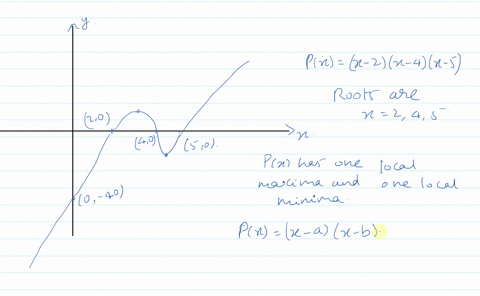 y
P(x) = (x-2)(x-4)(x-5)
Roots are
x = 2, 4, 5
(2,0)
(4,0)
(5,0)
x
P(x) has one local
maxima and one local
minima
(0,-40)
P(x) = (x-a)(x-b)